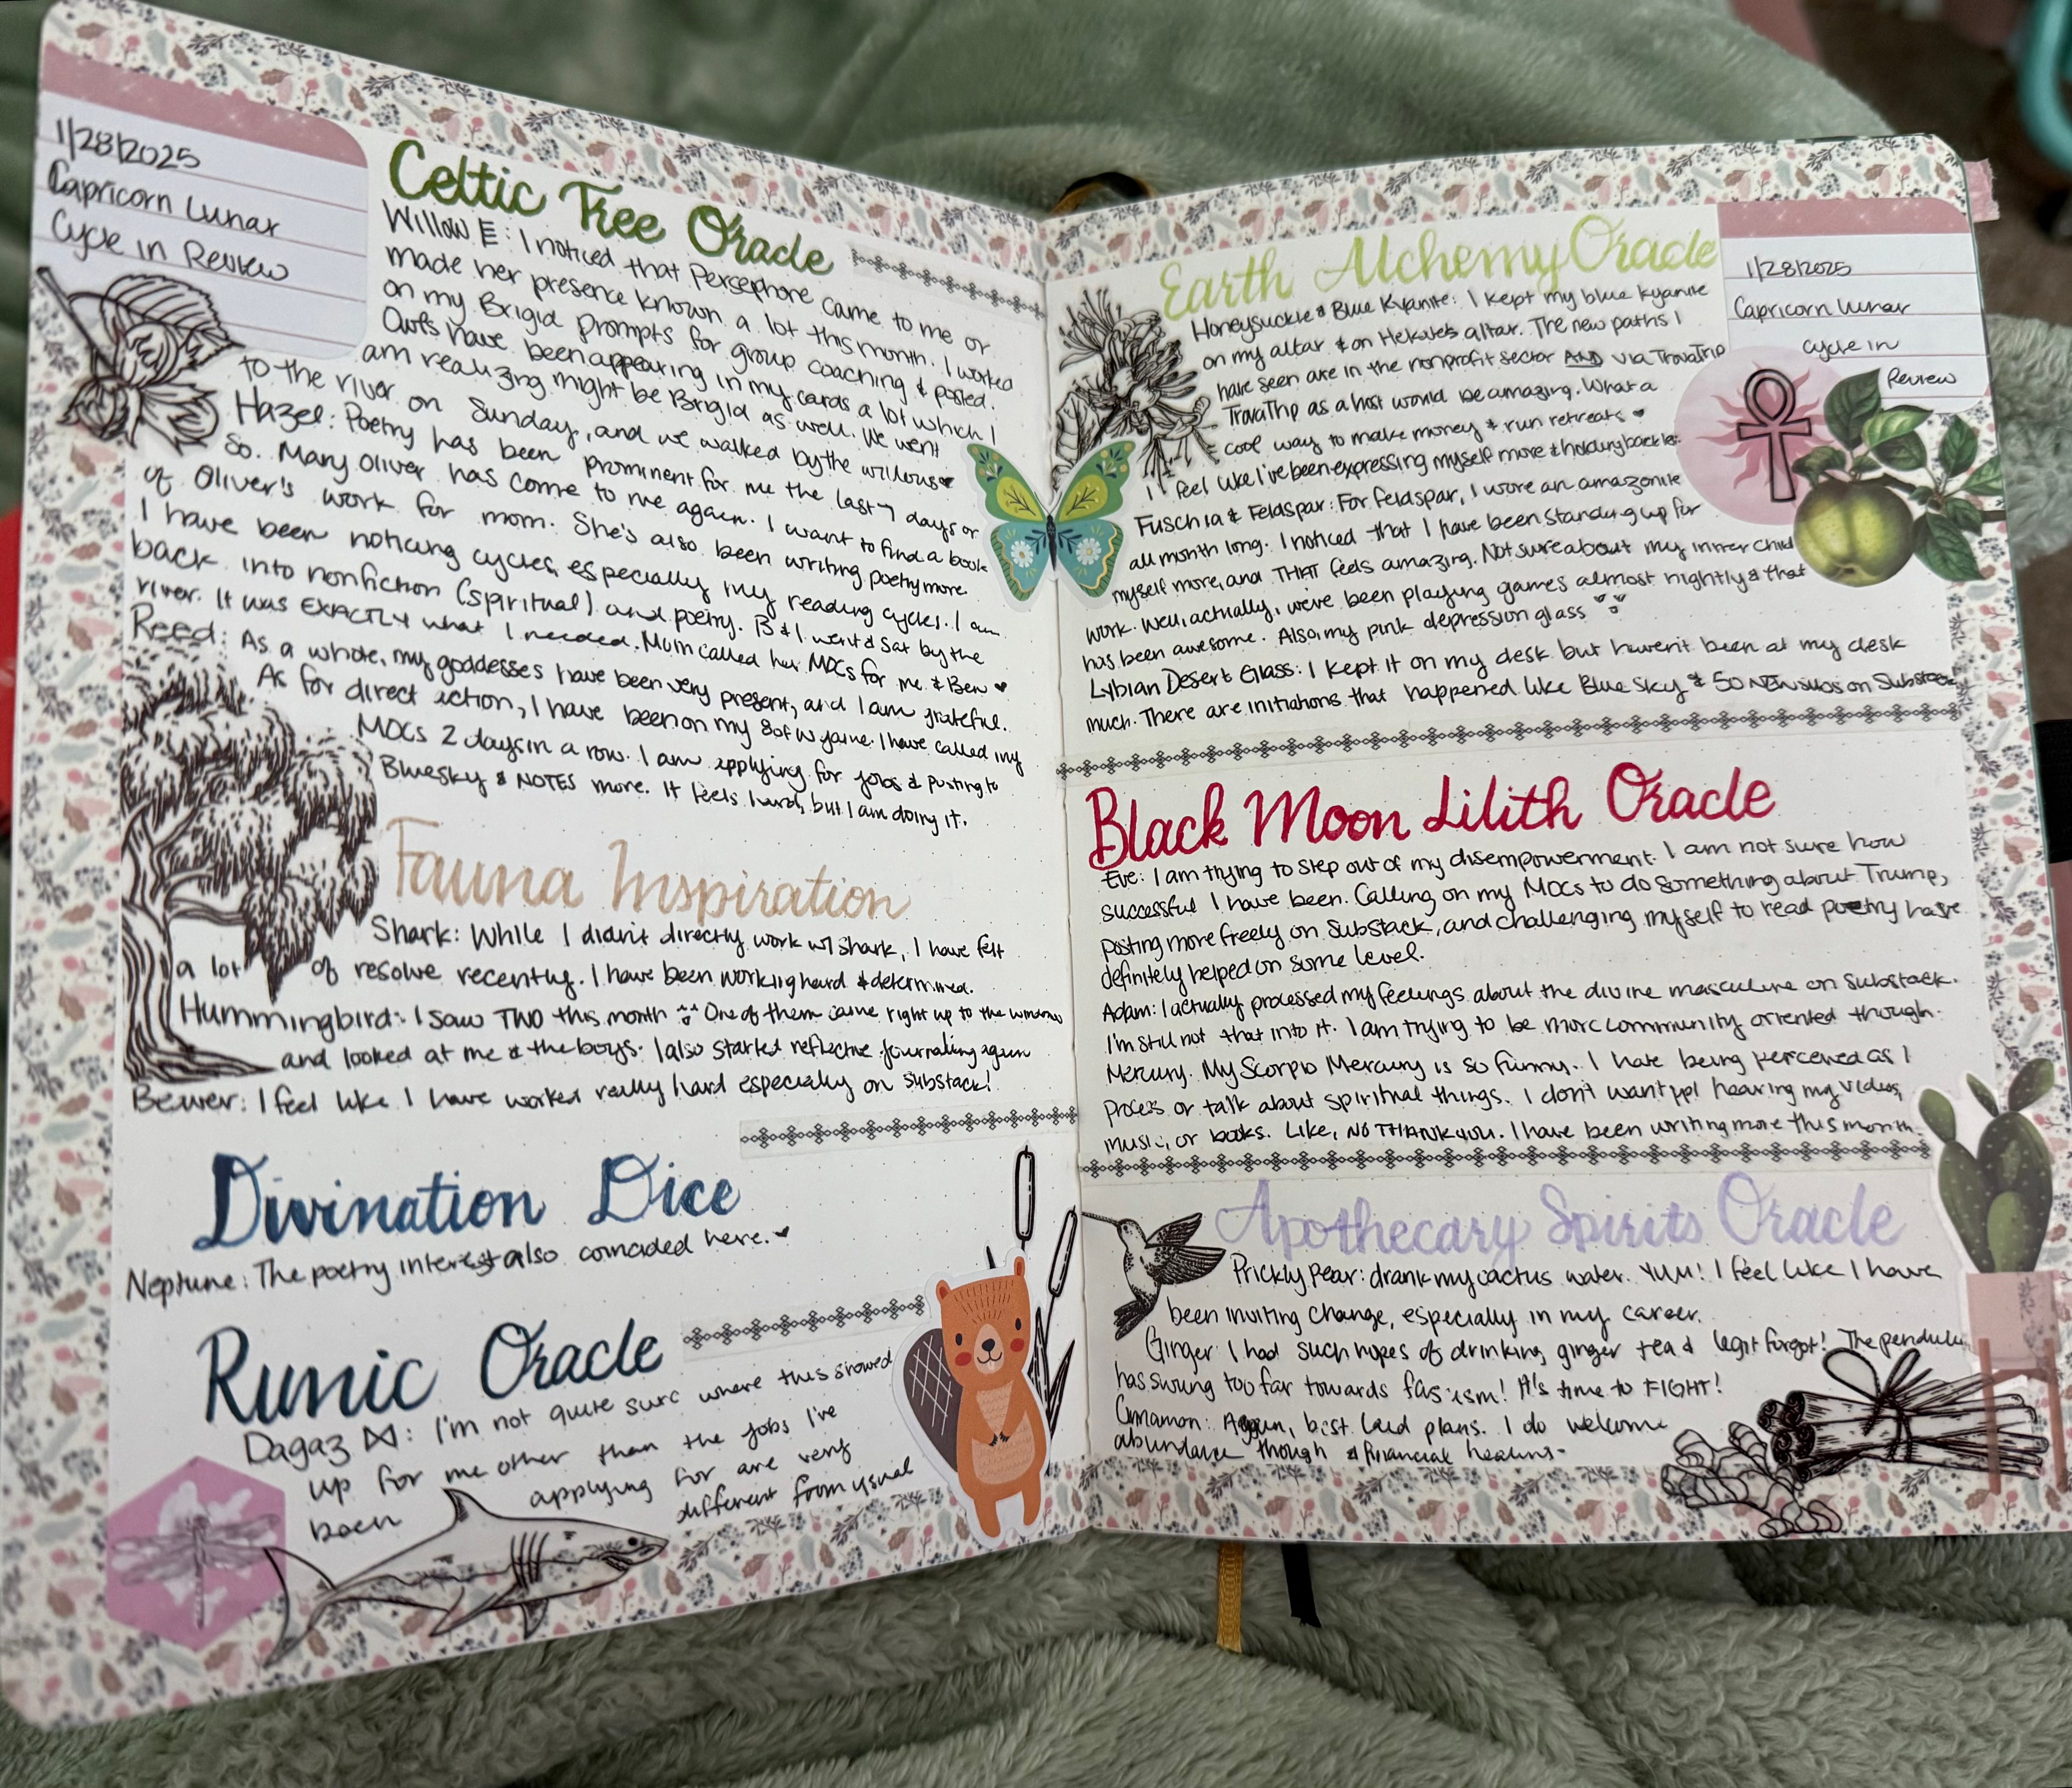 1/28/2025
Capricorn Lunar
Cycle in Review
Celtic Tree Oracle
Willow: I noticed that Persephone came to me or
made her presence known a lot this month. I worked
on my Brigid prompts for group coaching & posted.
Owls have been appearing in my cards a lot which I
am realizing might be Brigid as well. We went
to the river on Sunday, and we walked by the willows ♥
Hazel: Poetry has been prominent for me the last 7 days or
so. Mary Oliver has come to me again. I want to find a book
of Oliver's work for mom. She's also been writing poetry more.
I have been noticing cycles, especially my reading cycles. I am
back into nonfiction (spiritual) and poetry. B & I went & sat by the
river. It was EXACTLY what I needed. Mum called her MOCs for me & Ben ♥
Reed: As a whole, my goddesses have been very present, and I am grateful.
As for direct action, I have been on my 8 of W game. I have called my
MOCs 2 days in a row. I am applying for jobs & posting to
Bluesky & NOTES more. It feels hard, but I am doing it.
Fauna Inspiration
Shark: While I didn't directly work w/ shark, I have felt
a lot of resolve recently. I have been working hard & determined.
Hummingbird: I saw TWO this month One of them came right up to the window
and looked at me & the boys. I also started reflective journaling again
Beaver: I feel like I have worked really hard especially on Substack!
Divination Dice
Neptune: The poetry interest also coincided here. ♥
Runic Oracle
Dagaz ᛞ: I'm not quite sure where this showed
up for me other than the jobs I've
been applying for are very
different from usual
Earth Alchemy Oracle
1/28/2025
Capricorn Lunar
Cycle in
Review
Honeysuckle & Blue Kyanite: I kept my blue kyanite
on my altar & on Hekate's altar. The new paths I
have seen are in the nonprofit sector AND via TrovaTrip
TrovaTrip as a host would be amazing. What a
cool way to make money & run retreats ♥
I feel like I've been expressing myself more & holding back less.
Fuschia & Feldspar: For feldspar, I wore an amazonite
all month long. I noticed that I have been standing up for
myself more, and THAT feels amazing. Not sure about my inner child
work. Well, actually, we've been playing games almost nightly & that
has been awesome. Also, my pink depression glass
Lybian Desert Glass: I kept it on my desk but haven't been at my desk
much. There are initiations that happened like Blue Sky & 50 NEW subs on Substack
Black Moon Lilith Oracle
Eve: I am trying to step out of my disempowerment. I am not sure how
successful I have been. Calling on my MOCs to do something about Trump,
posting more freely on Substack, and challenging myself to read poetry have
definitely helped on some level.
Adam: I actually processed my feelings about the divine masculine on Substack.
I'm still not that into it. I am trying to be more community oriented though.
Mercury: My Scorpio Mercury is so funny. I hate being perceived as I
process or talk about spiritual things. I don't want ppl hearing my videos,
music, or books. Like, NO THANK YOU. I have been writing more this month.
Apothecary Spirits Oracle
Prickly Pear: drank my cactus water. YUM! I feel like I have
been inviting change, especially in my career.
Ginger: I had such hopes of drinking ginger tea & legit forgot! The pendulum
has swung too far towards fascism! It's time to FIGHT!
Cinnamon: Again, best laid plans. I do welcome
abundance though & financial healing.